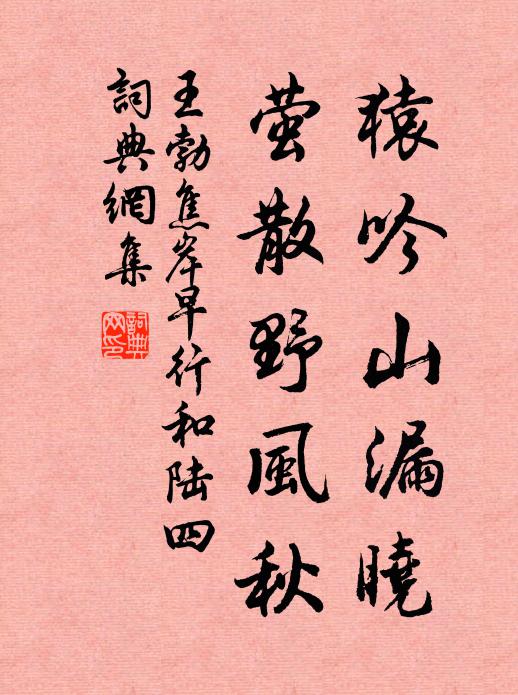 猿吟山漏曉
萤散野風秋
王勃焦岸早行和陆四
詞典網集
詞典网印